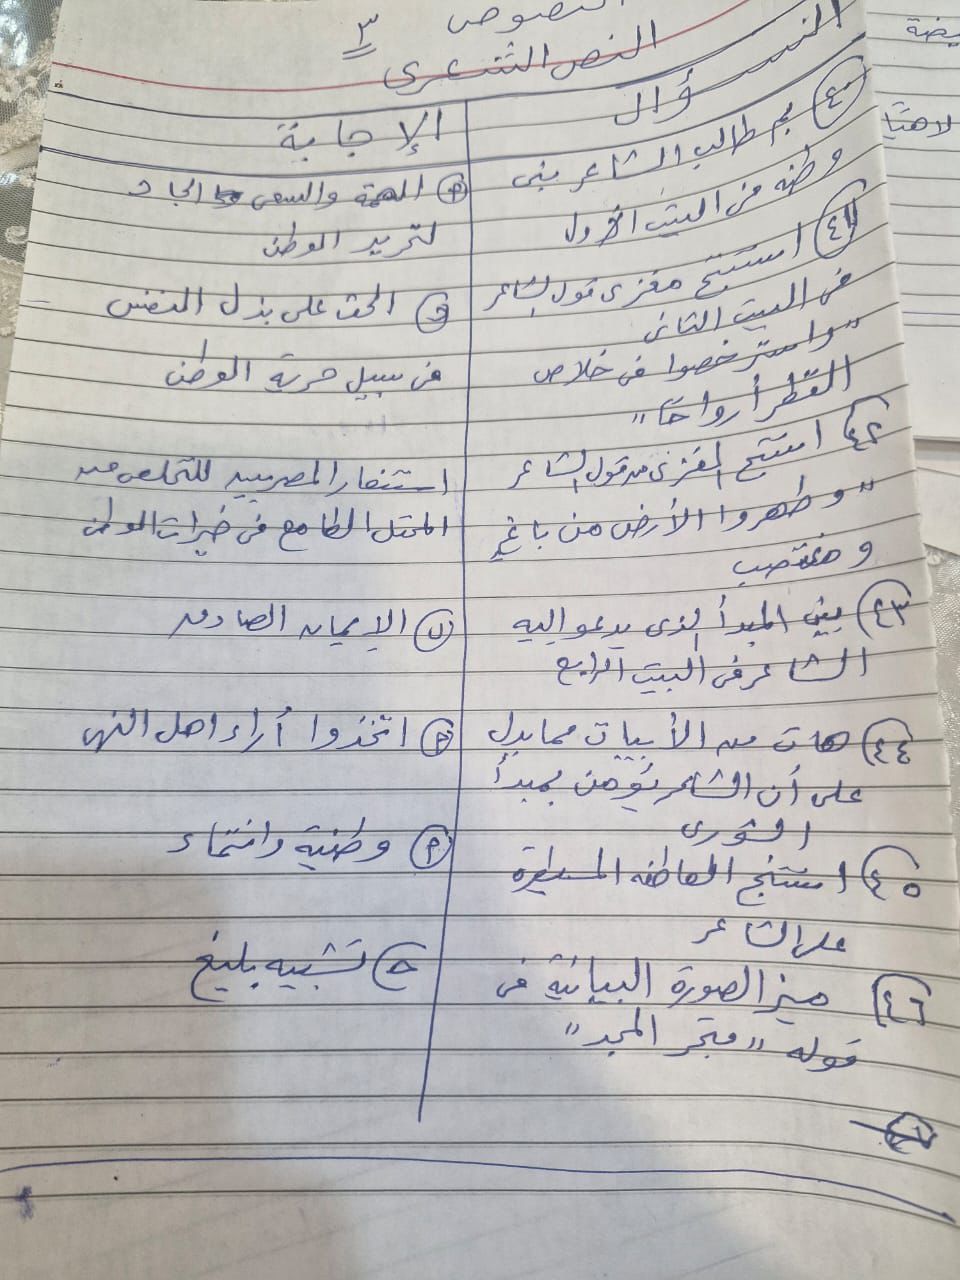 النصوص ٣
النص الشعرى
السؤال
الإجابة
٤٠ بم طالب الشاعر بنى
وطنه فى البيت الأول
أ الهمة والسعى الجاد
لتحرير الوطن
٤١ استنتج مغزى قول الشاعر
فى البيت الثانى
"واسترخصوا فى خلاص
القطر أرواحًا"
الحث على بذل النفس
فى سبيل حرية الوطن
٤٢ استنتج المغزى من قول الشاعر
"وطهروا الأرض من باغٍ
ومغتصب
استنفار المصريين للتخلص من
المحتل الطامع فى خيرات الوطن
٤٣ بين المبدأ الذى يدعو إليه
الشاعر فى البيت الرابع
الإيمان الصادق
٤٤ هات من الأبيات مما يدل
على أن الشاعر يؤمن بمبدأ
الشورى
اتخذوا أراء اهل النهى
٤٥ استنتج العاطفة المسيطرة
على الشاعر
أ وطنية وانتماء
٤٦ ميز الصورة البيانية فى
قوله "متجر المجد"
ح تشبيه بليغ